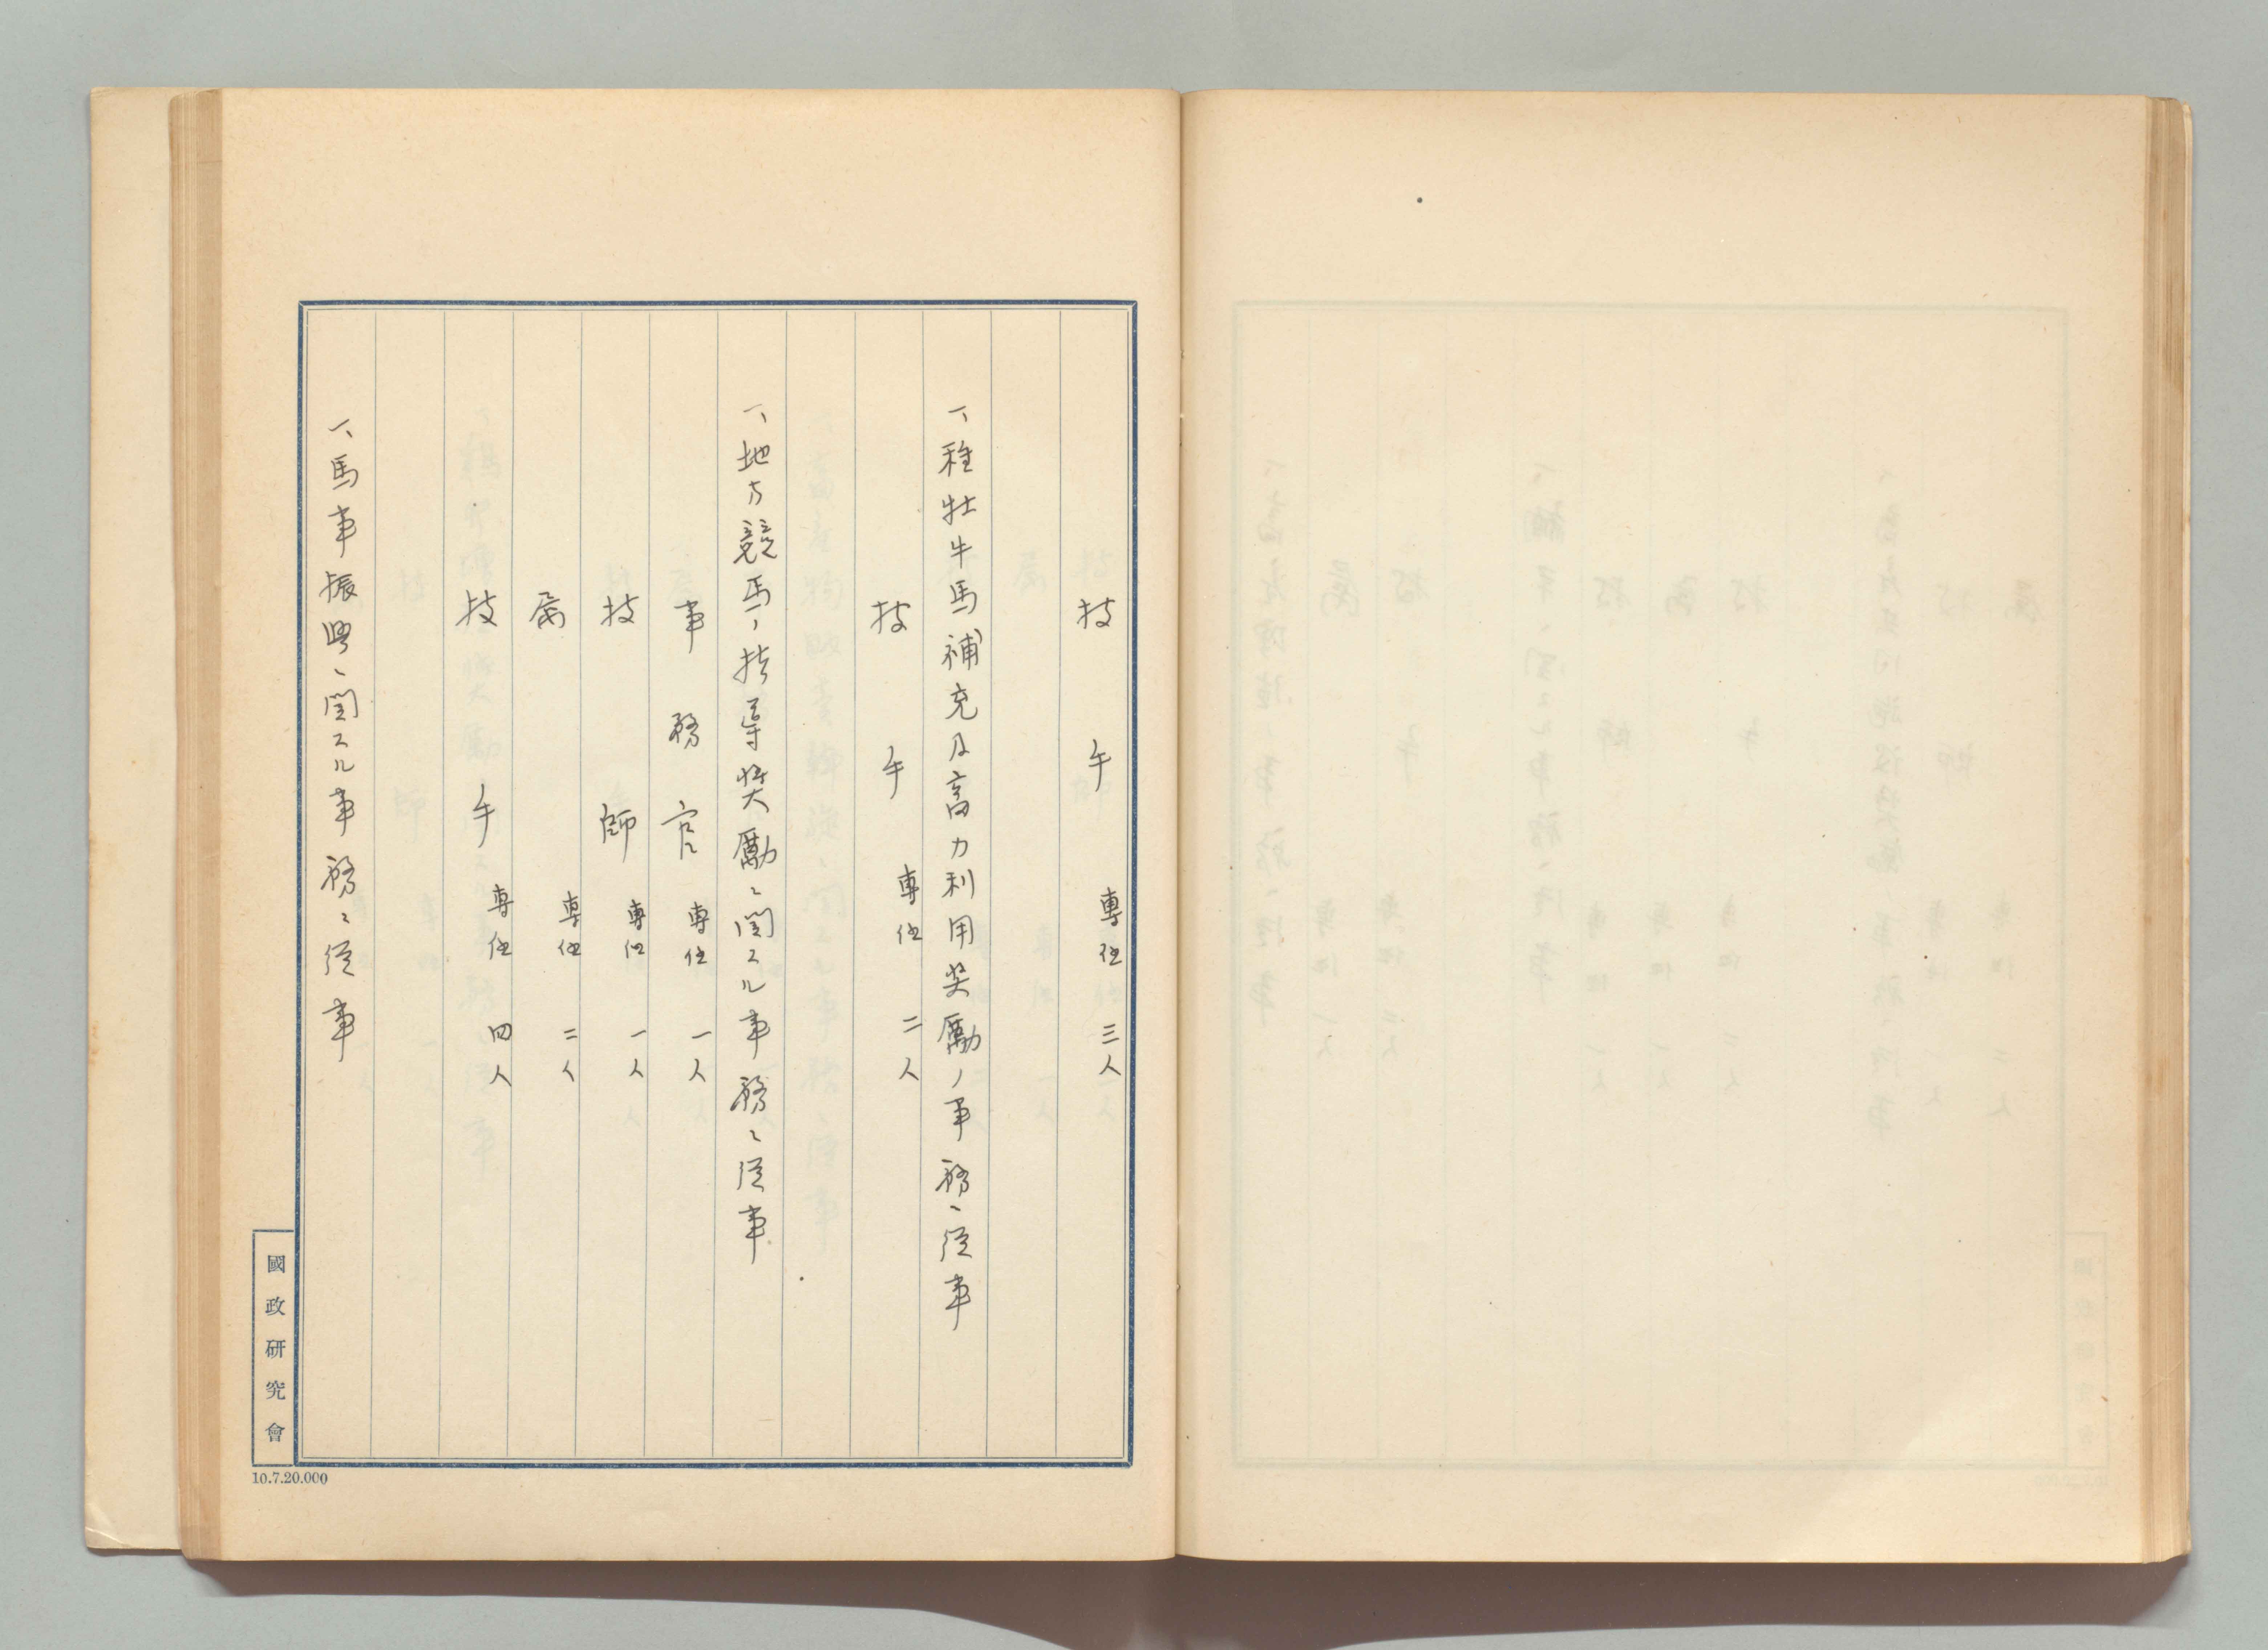 技手 専任 三人
一、種牡牛馬補充及畜力利用奨励ノ事務ニ従事
技手 専任 二人
一、地方競馬ノ指導奨励ニ関スル事務ニ従事
事務官 専任 一人
技師 専任 一人
属 専任 二人
技手 専任 四人
一、馬事振興ニ関スル事務ニ従事
國政研究會
10.7.20.000